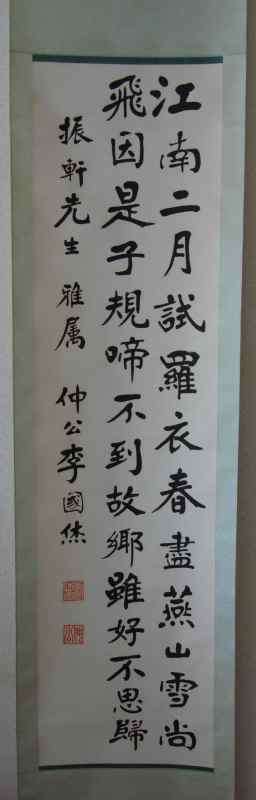 江南二月試羅衣春盡燕山雪尚
飛因是子規啼不到故鄉雖好不思歸
振軒先生雅属 仲公李國杰